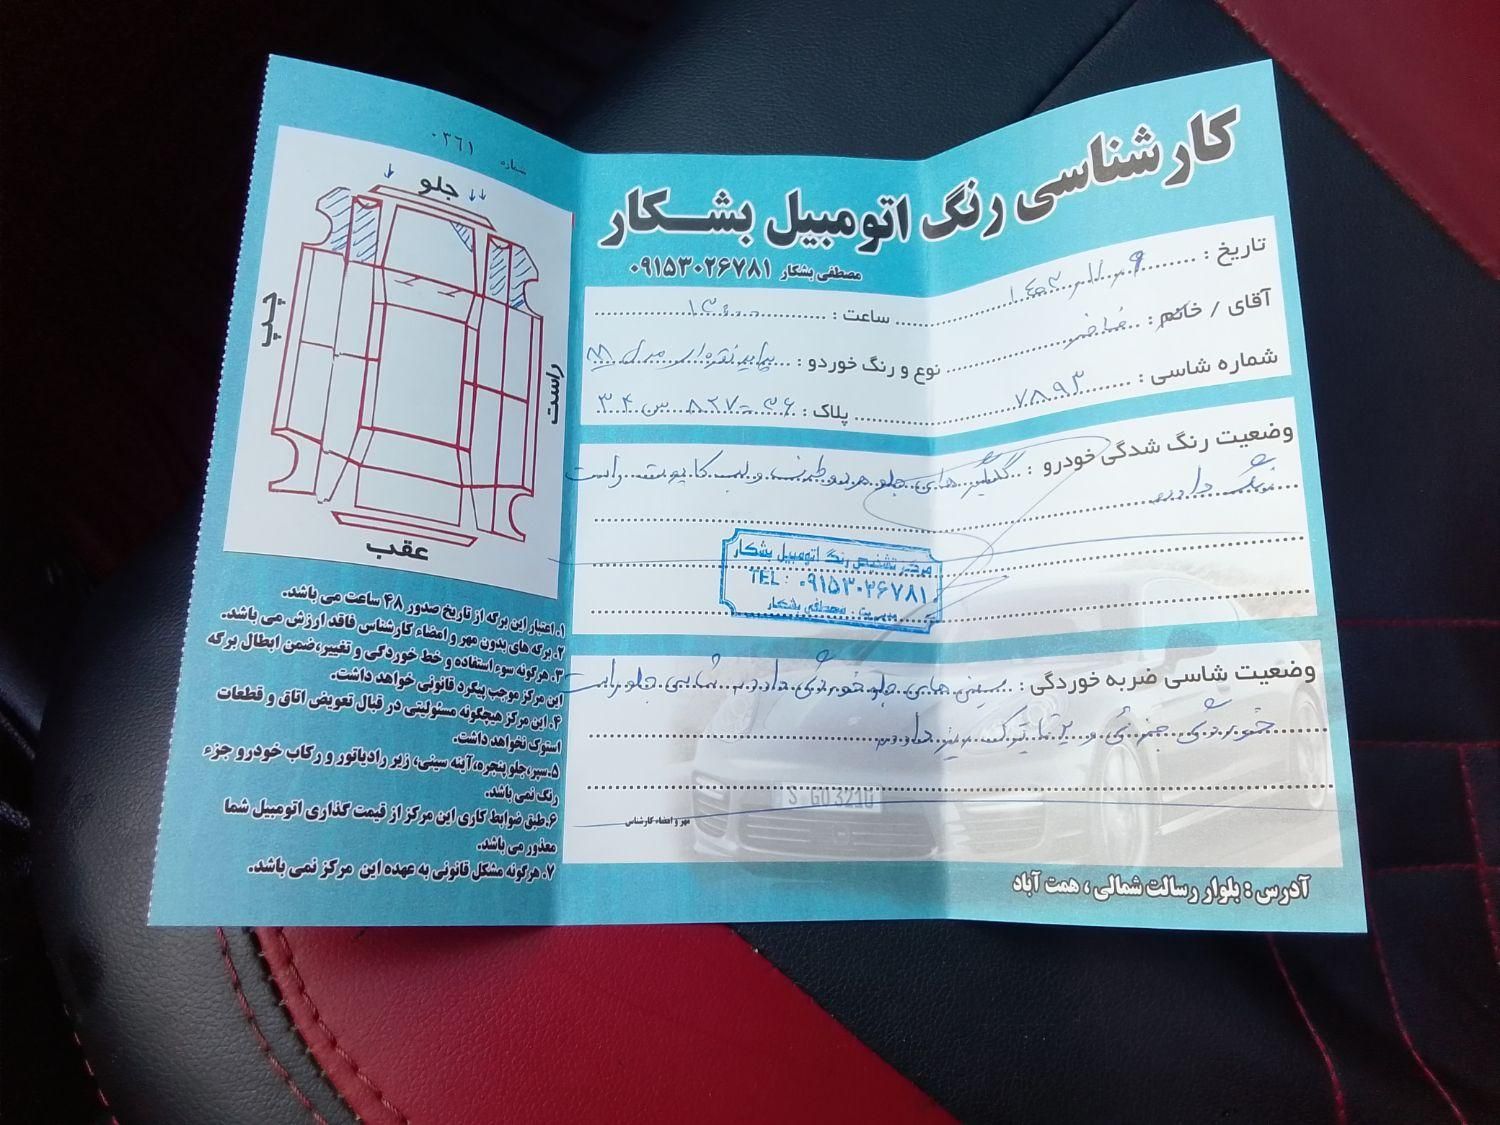 کارشناسی رنگ اتومبیل بشکار
مصطفی بشکار ۰۹۱۵۳۰۲۶۷۸۱
تاریخ :
ساعت : ۱۳:۰۰
آقای / خانم :
نوع و رنگ خوردو : پراید نقره ای مدل
شماره شاسی : ۷۸۹۳
پلاک : ۳۶-۸۲۷ س ۳۴
وضعیت رنگ شدگی خودرو : گلگیر های جلو هر دو طرف و لب کاپوت راست
رنگ دارد
مرکز تشخیص رنگ اتومبیل بشکار
TEL: ۰۹۱۵۳۰۲۶۷۸۱
مدیریت: مصطفی بشکار
وضعیت شاسی ضربه خوردگی : سینی های جلو خوردگی دارد شاسی جلو راست
خوردگی جزئی و
S GO 3210
مهر و امضاء کارشناس
آدرس : بلوار رسالت شمالی ، همت آباد
شماره ۰۳۶۱
جلو
چپ
راست
عقب
۱. اعتبار این برگه از تاریخ صدور ۴۸ ساعت می باشد.
۲. برگه های بدون مهر و امضاء کارشناس فاقد ارزش می باشد.
۳. هرگونه سوء استفاده و خط خوردگی و تغییر،ضمن ابطال برگه
این مرکز موجب پیگرد قانونی خواهد داشت.
۴. این مرکز هیچگونه مسئولیتی در قبال تعویض اتاق و قطعات
استوک نخواهد داشت.
۵.سپر،جلو پنجره،آینه سینی، زیر رادیاتور و رکاب خودرو جزء
رنگ نمی باشد.
۶.طبق ضوابط کاری این مرکز از قیمت گذاری اتومبیل شما
معذور می باشد.
۷. هرگونه مشکل قانونی به عهده این مرکز نمی باشد.